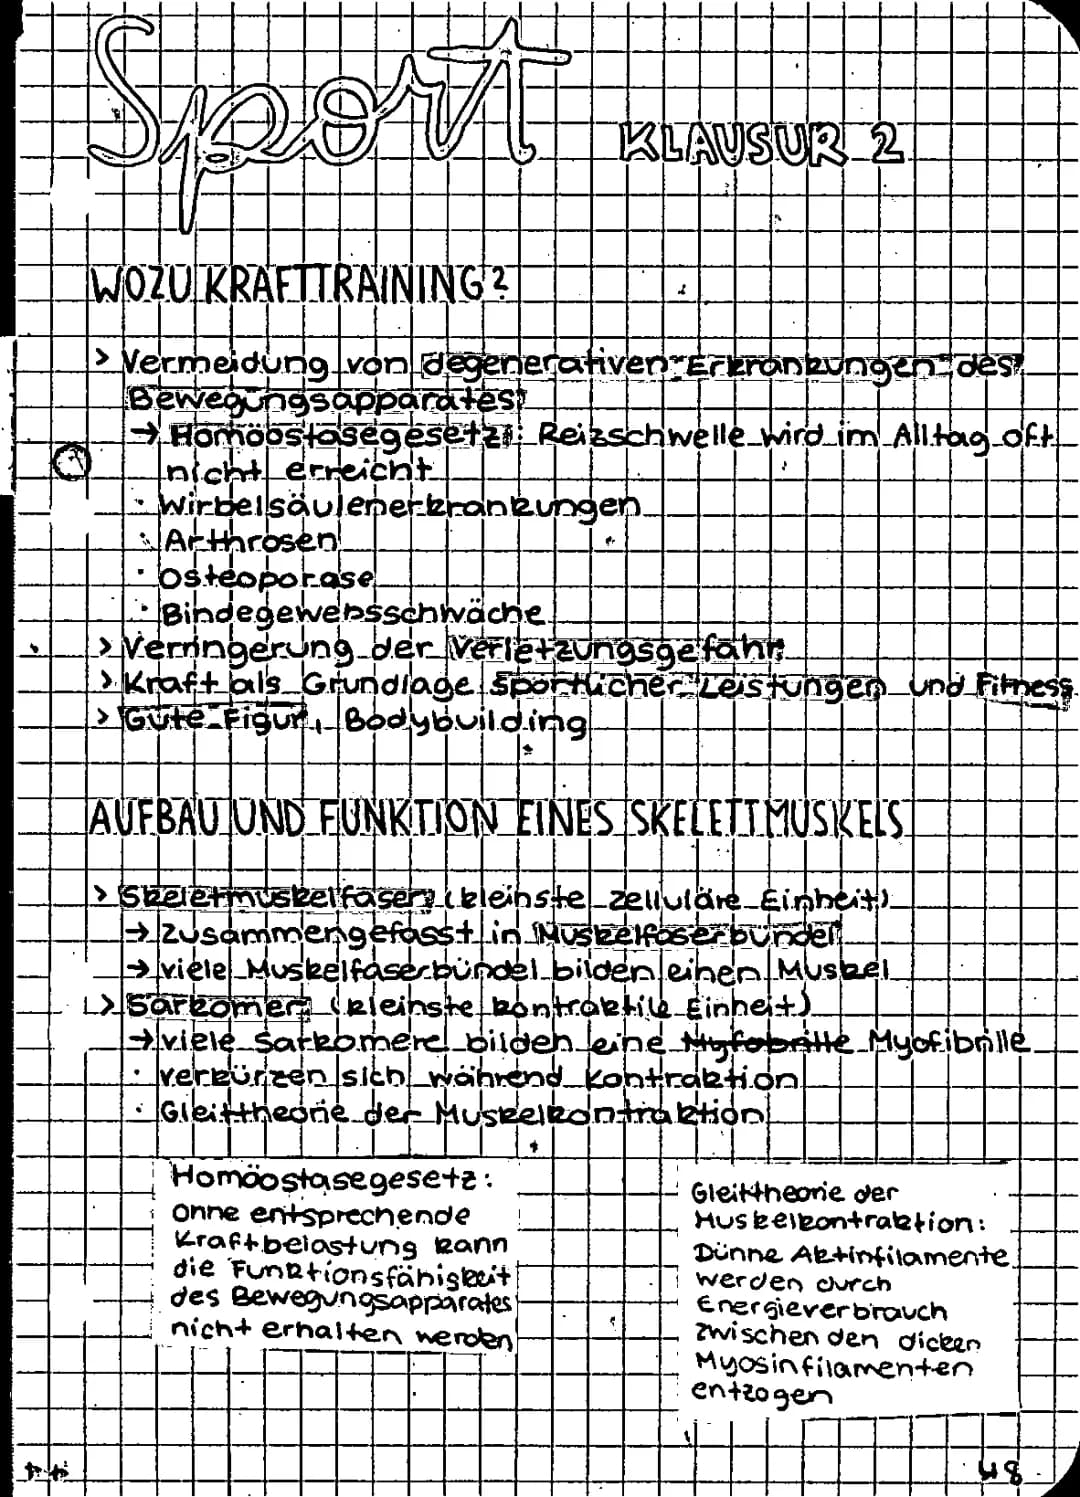 Sport KLAUSUR 2
WOZU KRAFTTRAINING?
> Vermeidung von degenerativen Erkrankungen des
Bewegungsapparates
→ Homöostasegesetz: Reizschwelle wird im Alltag oft
nicht erreicht
· Wirbelsäulenerkrankungen
· Arthrosen
· Osteoporase
· Bindegewebsschwäche
> Verringerung der Verletzungsgefahr
> Kraft als Grundlage sportlicher Leistungen und Fitness
> Gute Figur, Bodybuilding
AUFBAU UND FUNKTION EINES SKELETTMUSKELS
> Skeletmuskelfaser (kleinste zelluläre Einheit)
→ zusammengefasst in Muskelfaserbündel
→ viele Muskelfaserbündel bilden einen Muskel
> Sarkomer (kleinste kontraktile Einheit)
→ viele Sarkomere bilden eine Myofibrille
· verkürzen sich während Kontraktion
· Gleittheorie der Muskelkontraktion
Homöostasegesetz:
ohne entsprechende
Kraftbelastung kann
die Funktionsfähigkeit
des Bewegungsapparates
nicht erhalten werden
Gleittheorie der
Muskelkontraktion:
Dünne Aktinfilamente
werden durch
Energieverbrauch
zwischen den dicken
Myosinfilamenten
entzogen